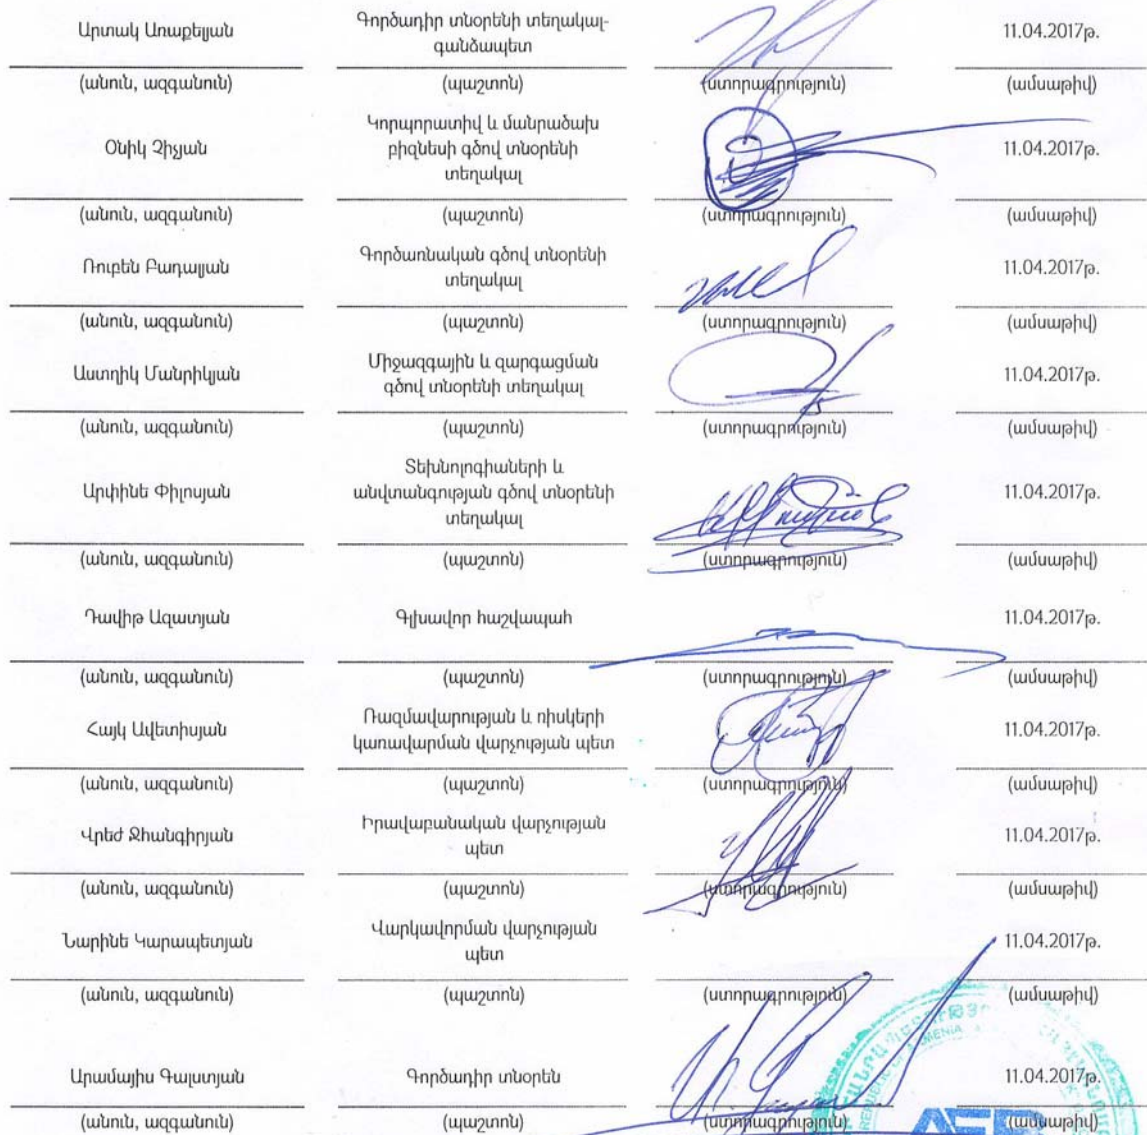 Արտակ Առաքելյան
Գործադիր տնօրենի տեղակալ-
գանձապետ
11.04.2017թ.
(անուն, ազգանուն) (պաշտոն) (ստորագրություն) (ամսաթիվ)
Օնիկ Չիչյան
Կորպորատիվ և մանրածախ
բիզնեսի գծով տնօրենի
տեղակալ
11.04.2017թ.
(անուն, ազգանուն) (պաշտոն) (ստորագրություն) (ամսաթիվ)
Ռուբեն Բադալյան
Գործառնական գծով տնօրենի
տեղակալ
11.04.2017թ.
(անուն, ազգանուն) (պաշտոն) (ստորագրություն) (ամսաթիվ)
Աստղիկ Մանրիկյան
Միջազգային և զարգացման
գծով տնօրենի տեղակալ
11.04.2017թ.
(անուն, ազգանուն) (պաշտոն) (ստորագրություն) (ամսաթիվ)
Արփինե Փիլոսյան
Տեխնոլոգիաների և
անվտանգության գծով տնօրենի
տեղակալ
11.04.2017թ.
(անուն, ազգանուն) (պաշտոն) (ստորագրություն) (ամսաթիվ)
Դավիթ Ազատյան
Գլխավոր հաշվապահ
11.04.2017թ.
(անուն, ազգանուն) (պաշտոն) (ստորագրություն) (ամսաթիվ)
Հայկ Ավետիսյան
Ռազմավարության և ռիսկերի
կառավարման վարչության պետ
11.04.2017թ.
(անուն, ազգանուն) (պաշտոն) (ստորագրություն) (ամսաթիվ)
Վրեժ Ջհանգիրյան
Իրավաբանական վարչության
պետ
11.04.2017թ.
(անուն, ազգանուն) (պաշտոն) (ստորագրություն) (ամսաթիվ)
Նարինե Կարապետյան
Վարկավորման վարչության
պետ
11.04.2017թ.
(անուն, ազգանուն) (պաշտոն) (ստորագրություն) (ամսաթիվ)
Արամայիս Գալստյան
Գործադիր տնօրեն
11.04.2017թ.
(անուն, ազգանուն) (պաշտոն) (ստորագրություն) (ամսաթիվ)